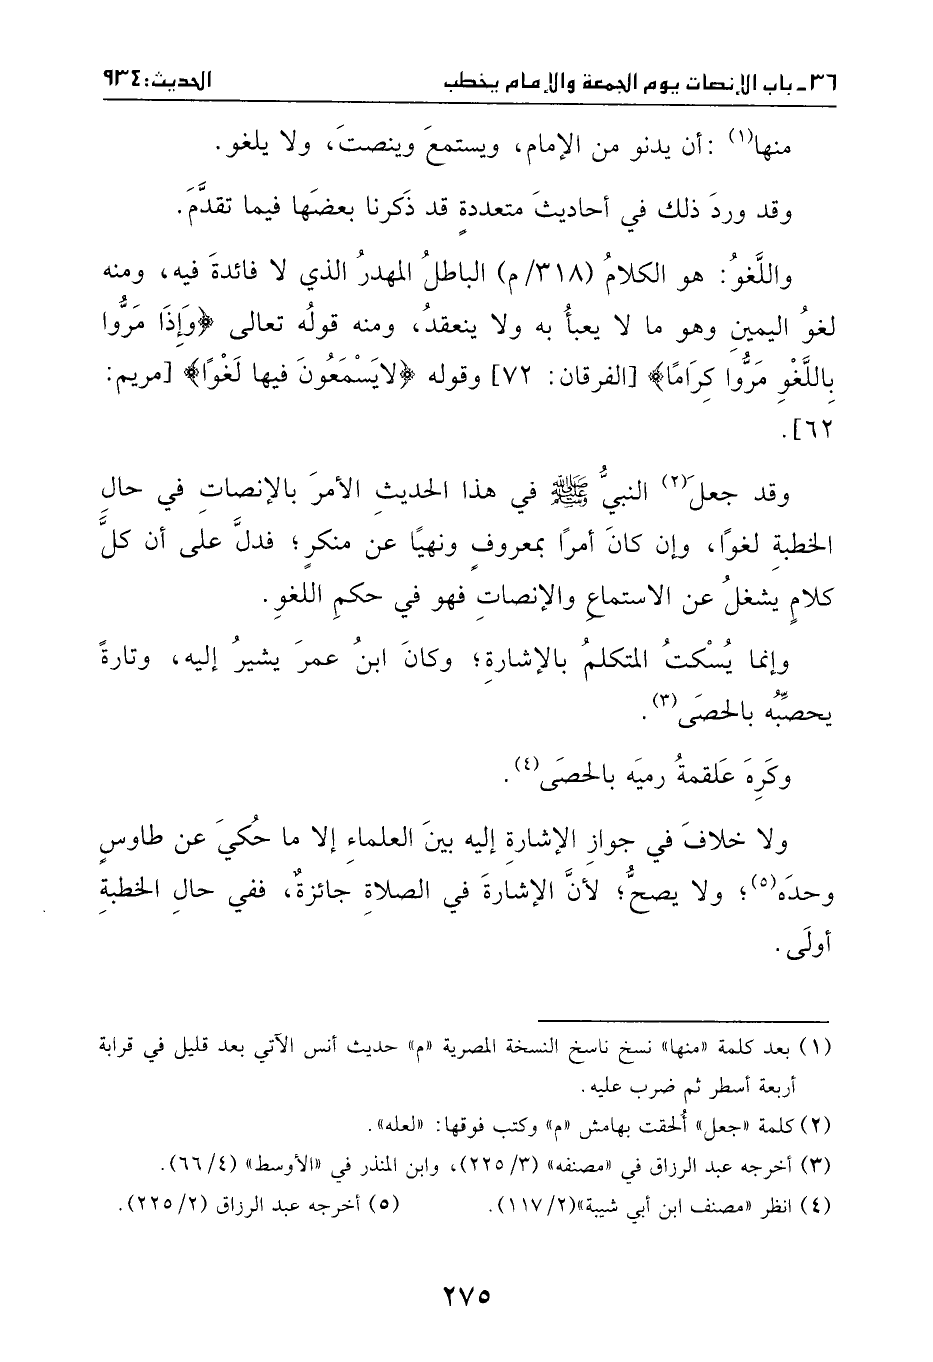 ٣٦ - باب الإنصات يوم الجمعة والإمام يخطب الحديث: ٩٣٤
منها(١) : أن يدنو من الإمام، ويستمعَ وينصتَ، ولا يلغو.
وقد وردَ ذلك في أحاديثَ متعددةٍ قد ذَكرنا بعضَها فيما تقدَّمَ.
واللَّغوُ: هو الكلامُ (٣١٨/ م) الباطلُ المهدرُ الذي لا فائدةَ فيه، ومنه
لغوُ اليمينِ وهو ما لا يعبأُ به ولا ينعقدُ، ومنه قولُه تعالى ﴿وَإِذَا مَرُّوا
بِاللَّغْوِ مَرُّوا كِرَامًا﴾ [الفرقان: ٧٢] وقوله ﴿لايَسْمَعُونَ فيها لَغْوًا﴾ [مريم:
٦٢].
وقد جعلَ(٢) النبيُّ ﷺ في هذا الحديثِ الأمرَ بالإنصاتِ في حالِ
الخطبةِ لغوًا، وإن كانَ أمرًا بمعروفٍ ونهيًا عن منكرٍ؛ فدلَّ على أن كلَّ
كلامٍ يشغلُ عن الاستماعِ والإنصاتِ فهو في حكمِ اللغوِ.
وإنما يُسْكتُ المتكلمُ بالإشارةِ؛ وكانَ ابنُ عمرَ يشيرُ إليه، وتارةً
يحصِّبُه بالحصَى(٣).
وكَرِهَ عَلقمةُ رميَه بالحصَى(٤).
ولا خلافَ في جوازِ الإشارةِ إليه بينَ العلماءِ إلا ما حُكيَ عن طاوسٍ
وحدَه(٥)؛ ولا يصحُّ؛ لأنَّ الإشارةَ في الصلاةِ جائزةٌ، ففي حالِ الخطبةِ
أولَى.
(١) بعد كلمة «منها» نسخ ناسخ النسخة المصرية «م» حديث أنس الآتي بعد قليل في قرابة
أربعة أسطر ثم ضرب عليه.
(٢) كلمة «جعل» أُلحقت بهامش «م» وكتب فوقها: «لعله».
(٣) أخرجه عبد الرزاق في «مصنفه» (٣/ ٢٢٥)، وابن المنذر في «الأوسط» (٤/ ٦٦).
(٤) انظر «مصنف ابن أبي شيبة»(٢/ ١١٧). (٥) أخرجه عبد الرزاق (٢/ ٢٢٥).
٢٧٥